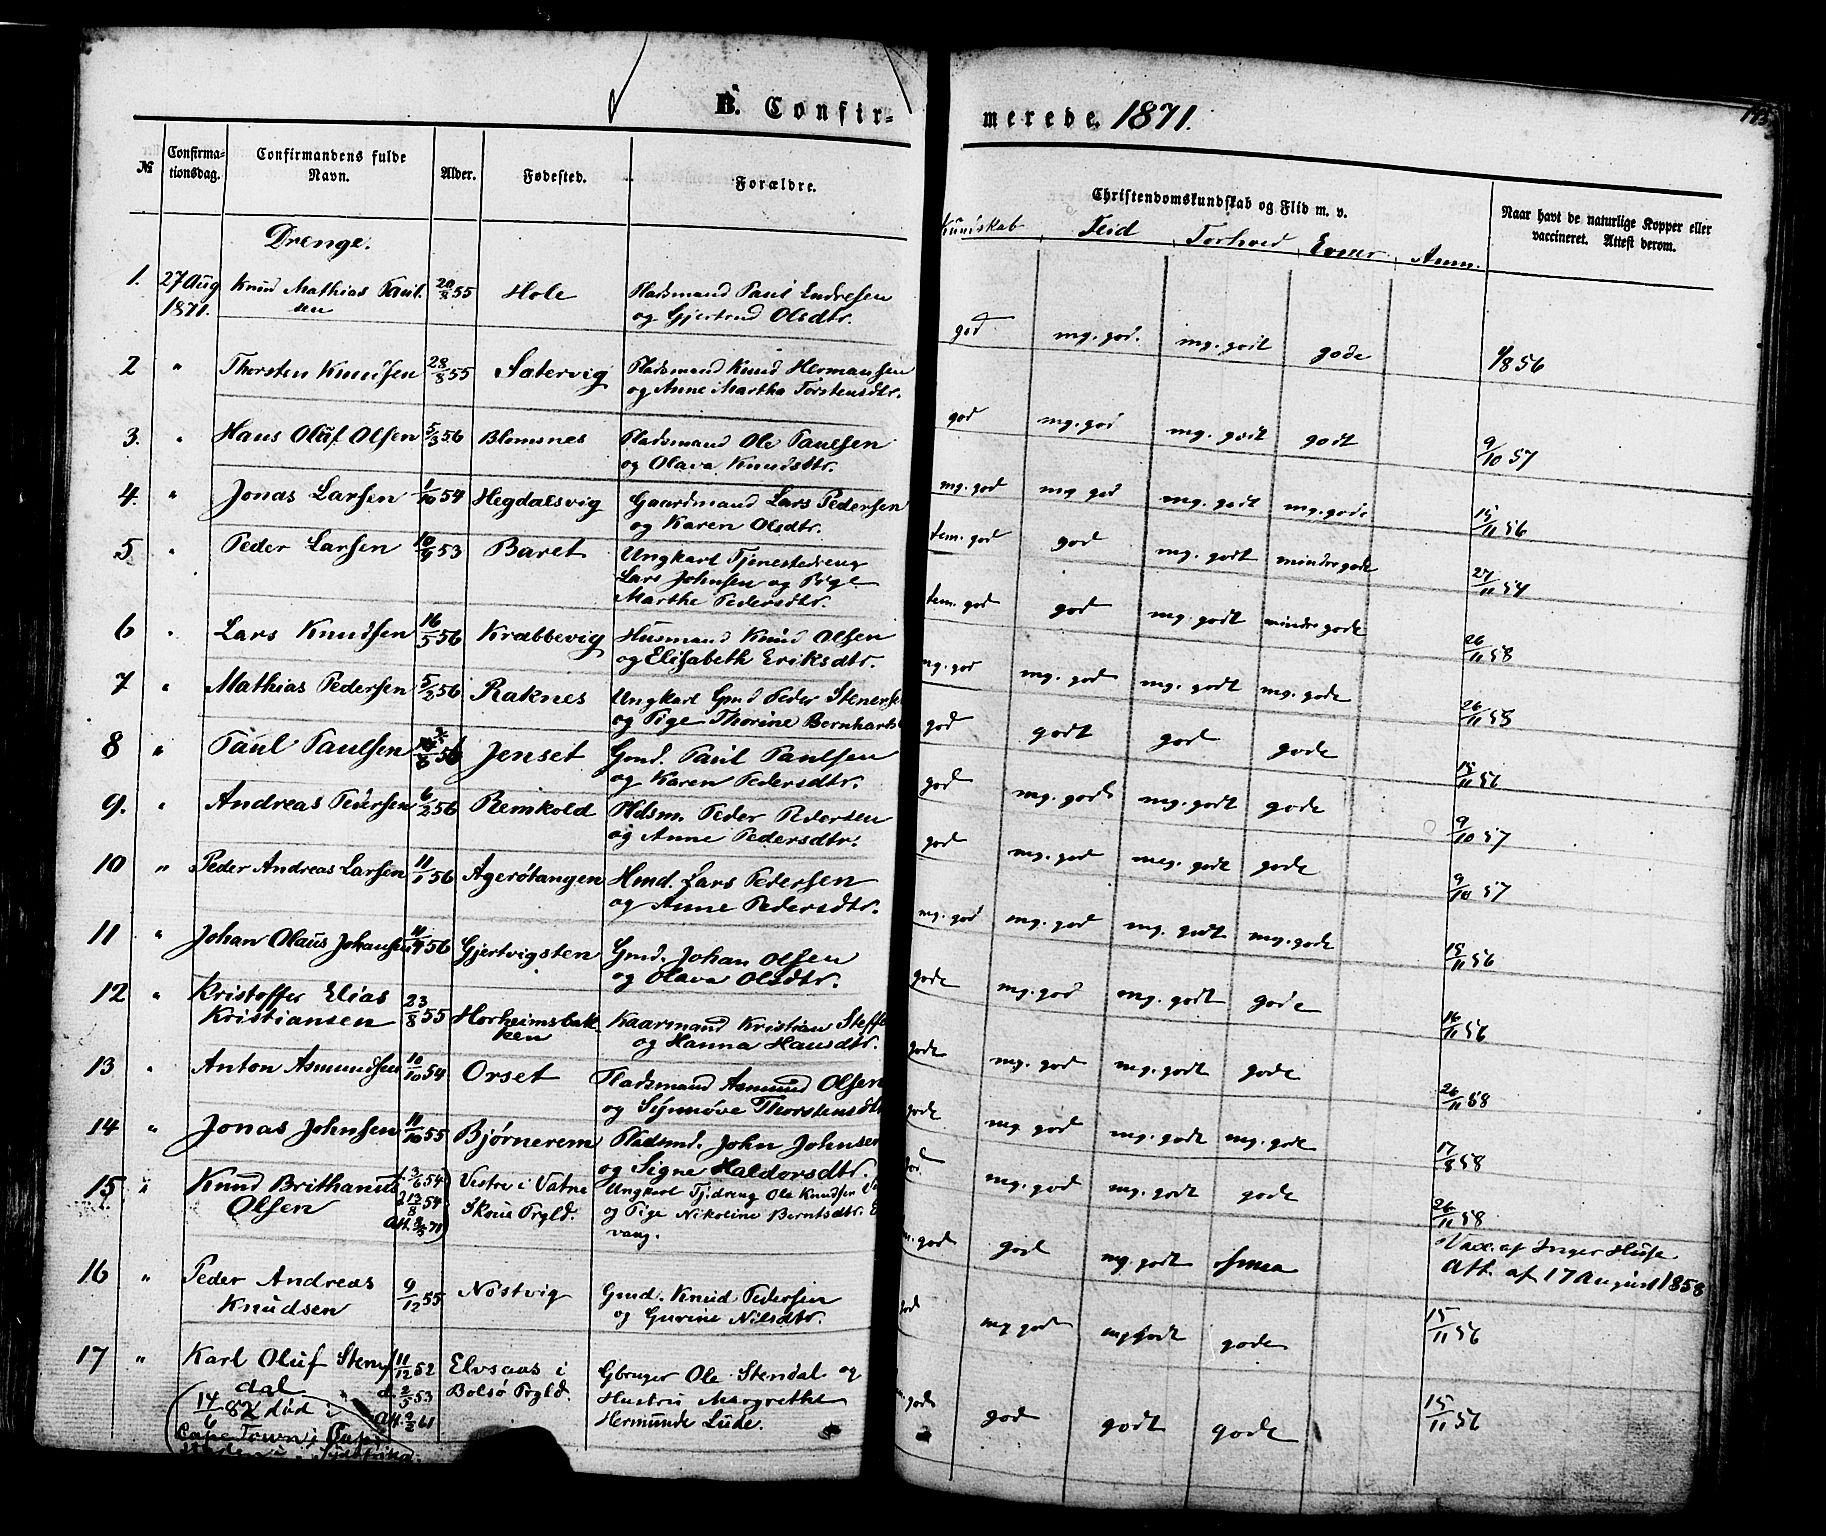 B. Confir-
№
Confirma-
tionsdag.
Confirmandens fulde
Navn.
Alder.
Fødested.
Forældre.
Drenge.
1. 27 Aug 1871. Knud Mathias Paul- 20/8 55 Hole Pladsmand Paul Endresen
sen og Gjertrud Olsdtr.
2 " Thorsten Knudsen 28/8 55 Sætervig Pladsmand Knud Hermansen
og Anne Martha Torstensdtr.
3. " Hans Oluf Olsen 5/3 56 Blomsnes Pladsmand Ole Paulsen
og Olava Knudsdtr.
4. " Jonas Larsen 1/10 54 Hegdalsvig Gaardmand Lars Pedersen
og Karen Olsdtr.
5. " Peder Larsen 10/9 53 Baret Ungkarl Tjenestedreng
Lars Johnsen og Pige
Marthe Pedersdtr.
6 " Lars Knudsen 16/5 56 Kræbbevig Husmand Knud Olsen
og Elisabeth Eriksdtr.
7 " Mathias Pedersen 5/2 56 Raknes Ungkarl Gmd Peder Stenerse
og Pige Thorine Bernhards
8 " Paul Paulsen 56 Jenset Gmd. Paul Paulsen
og Karen Pedersdtr.
9. " Andreas Pedersen 6/2 56 Remkold Pldsm. Peder Pedersen
og Anne Pedersdtr.
10 " Peder Andreas Larsen 11/1 56 Agerøtangen Hmd. Lars Pedersen
og Anne Pedersdtr.
11 " Johan Olaus Johansen 11/4 56 Gjertvigsten Gmd. Johan Olsen
og Olava Olsdtr.
12 " Kristoffer Elias 23/8 55 Horheimsbak-
Kristiansen ken Kaarmand Kristian Steffe
og Hanna Hansdtr.
13 " Anton Asmundsen 10/10 54 Orset Pladsmand Asmund Olsen
og Synnøve Thorstensdt
14 " Jonas Johnsen 11/10 55 Bjørnerem Pladsmd. John Johnsen
og Signe Haldorsdtr.
15 " Knud Brithanus f. 3/6 54 Vestre i Vatne Ungkarl Tj.dreng Ole Knudsen
Olsen 13/8 54 Skoue Prgld. og Pige Nikoline Berntsdtr.
Att. 71 vang.
16 " Peder Andreas 9/12 55 Nøstvig Gmd. Knud Pedersen
Knudsen og Gurine Nilsdtr.
17 " Karl Oluf Sten- f 11/12 52 Elvsaas i Gbruger Ole Stendal og
dal d. 2/5 53 Bolsø Prgld. Hustru Margrethe
Att. 61 Hermunde Lude.
14/6 82 død i
Cape Town i Cap
merede. 1871.
Christendomskundskab og Flid m. v.
Naar havt de naturlige Kopper eller
vaccineret. Attest derom.
Kundskab Flid Forhold Evner Anm.
god mg. god. mg. godt gode 56
god mg. god mg. godt godt 9/10 57
mg. god mg god mg. godt mg. gode 15/11 56
tem. god god mg. godt mindre gode 27/11 54
tem. god god mg. godt mindre gode 26/11 58
mg. god mg. god mg. godt mg. gode 26/11 58
god godt god gode 15/11 56
god mg. gode mg. godt gode 9/10 57
god mg. god meg. godt gode 9/10 57
mg. god mg. god mg. godt mg. gode 15/11 56
gode mg. god mg. godt gode 16/11 56
gode mg. god mg. godt gode 26/11 58
gode mg. god mg. godt mg. gode 17/8 58
god. mg. god mg. godt gode 26/11 58
god god mg. godt smaa Vax. af Inger Huse
Att. af 17 August 1858
god mg god mg godt gode 15/11 56
gode god godt gode 15/11 56